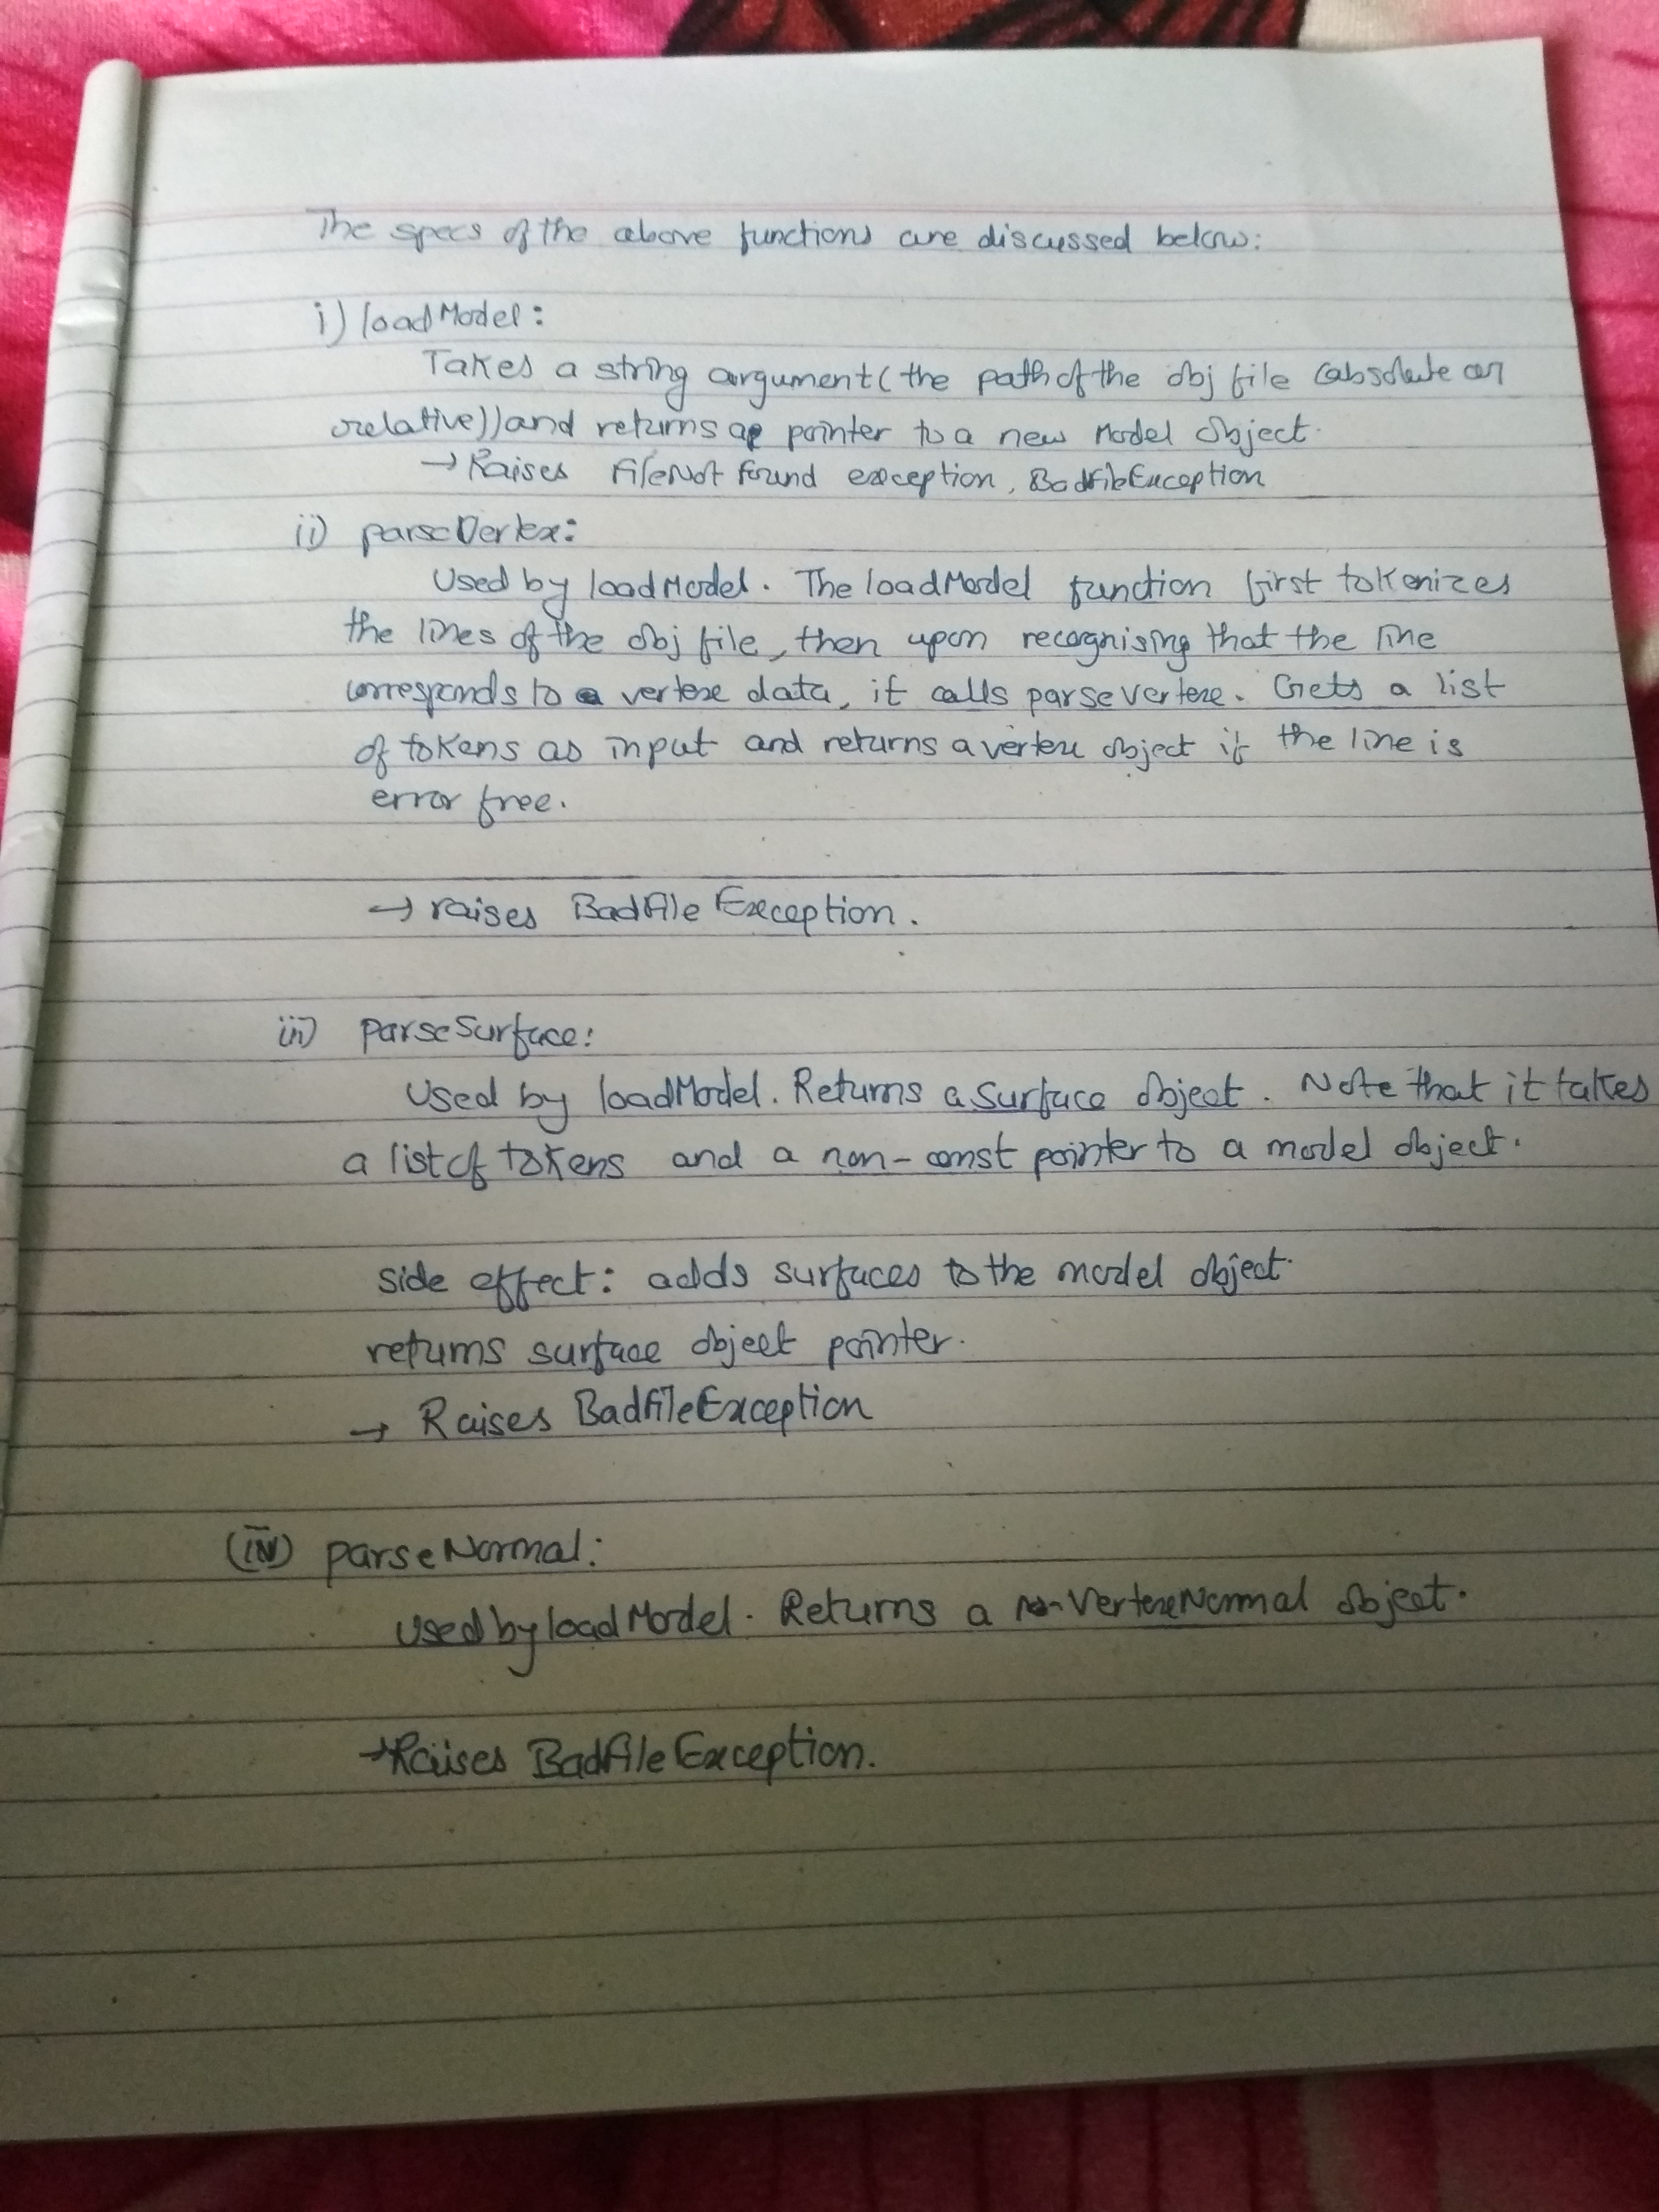 The specs of the above functions are discussed below:
i) loadModel:
Takes a string argument (the path of the obj file (absolute or
relative)) and returns a pointer to a new Model object.
→ Raises FileNot found exception, BadFileException
ii) parseVertex:
Used by loadModel. The loadModel function first tokenizes
the lines of the obj file, then upon recognising that the line
corresponds to a vertex data, it calls parsevertex. Gets a list
of tokens as input and returns a vertex object if the line is
error free.
→ raises BadFile Exception.
iii) parseSurface:
Used by loadModel. Returns a Surface object. Note that it takes
a list of tokens and a non-const pointer to a model object.
side effect: adds surfaces to the model object.
returns surface object pointer.
→ Raises BadfileException
(iv) parseNormal:
Used by loadModel. Returns a VertexNormal object.
→ Raises BadFileException.